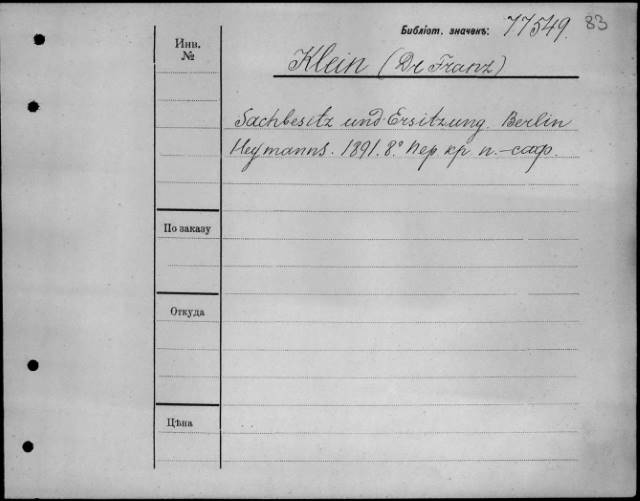 Библіот. значекъ: 77549. 83
Инв.
№
Klein (Dr Franz)
Sachbesitz und Ersitzung. Berlin
Heymanns. 1891. 8° Пер. кр. п.-саф.
По заказу
Откуда
Цѣна